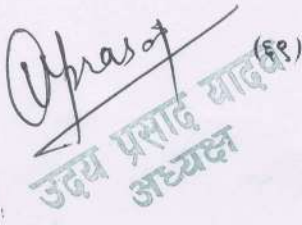 Uprasad
(६९)
उदय प्रसाद यादव
अध्यक्ष